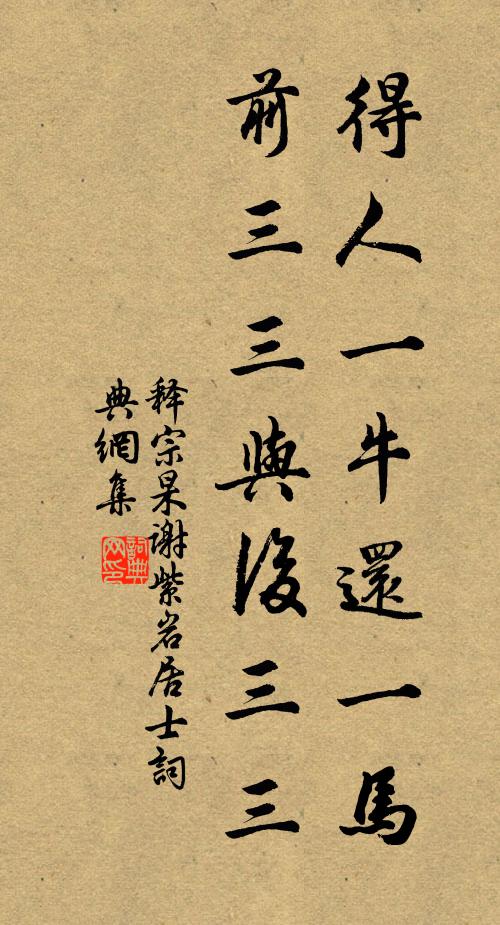 得人一牛還一馬
前三三與後三三
释宗杲謝紫岩居士詞
典網集
詞典网印